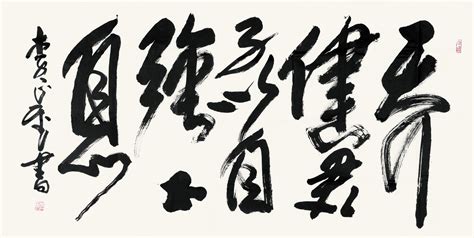 天行
健君
子以自
強不
息
書